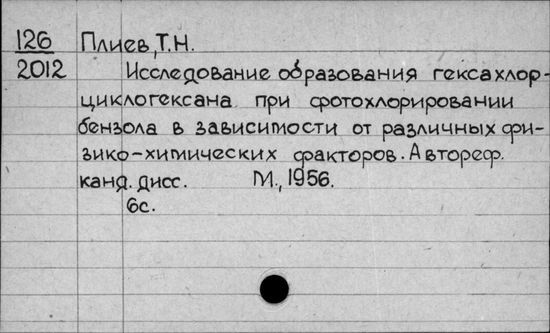 126 Плиев, Т.Н.
2012 Исследование образования гексахлор-
циклогексана при фотохлорировании
бензола в зависимости от различных фи-
зико-химических факторов. Автореф.
канд. дисс. М., 1956.
6с.